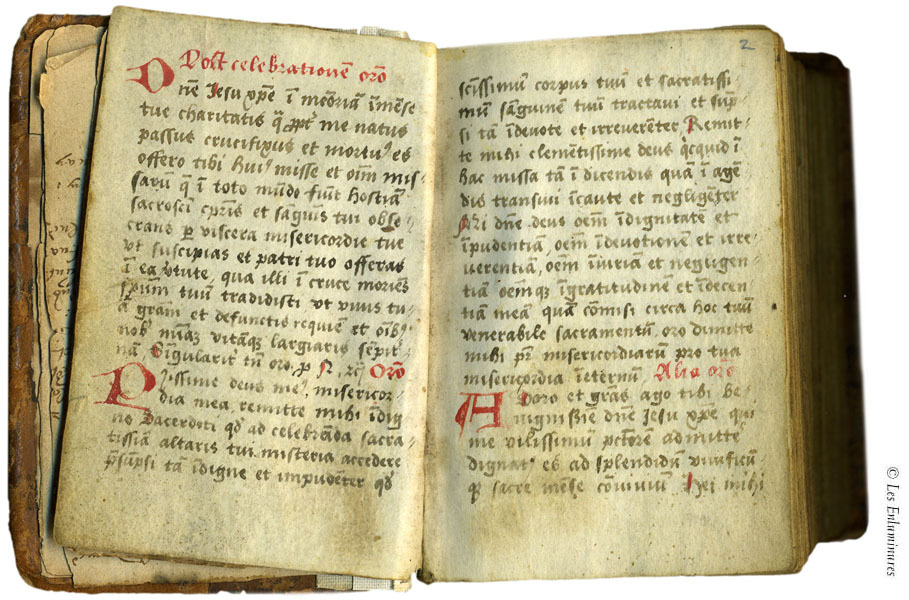 Post celebrationē orō
Dne Jesu xp̄e ī mēoriā īmēse
tue charitatis q̄ ꝓpt̄ me natus
passus crucifixus et mortuꝰ es
offero tibi huiꝰ misse et oīm mis-
sarū q̄ ī toto mūdo fiūt hostiā
sacrosc̄i corp̄is et sāguis tui obse-
crans ꝑ viscera misericordie tue
ut suscipias et patri tuo offeras
ī ea v̄tute, qua illi ī cruce moriēs
sp̄um tuū tradidisti ut vivis tu-
ā gr̄am et defunctis requiē et oībꝰ
nobꝰ vitāqꝫ largiaris sēpit-
nā. Sīgularit̄ tn̄ oro, p Orō
Piissime deus meꝰ, misericor-
dia mea, remitte mihi īdig-
no Sacerdoti qd̄ ad celebrāda sacra-
tissiā altaris tui misteria accedere
p̄sūpsi tā īdigne et impudēter qd̄
2
sctīssimū corpus tuū et sacratissi
mū sāguinem tuū tractavi et sūp
si tā īdevote et irreverēter Remit-
te mihi clemētissime deus qc̄quid ī
hac missa tā ī dicendis quā ī agē
dis transivi īcaute et negligēter
dn̄e deus oēm īdignitatē et
īpudentiā, oēm īdevotionē et irre-
verentiā, oēm īiuriā et negligen-
tiā oēmqꝫ īgratitudinē et īdecen
tiā meā quā cōmisi circa hoc tuū
venerabile sacramentū oro dimitte
mihi pr̄ misericordiarū pro tua
misericordia īeternū Alia orō
Adoro et grās ago tibi be
nignissīe dn̄e Jesu xp̄e qui
me vilissimū pctōrē admitte
dignatꝰ es ad splendidū vivificū
qꝫ sacre mēse cōvivium Hei mihi
© Les Enluminures